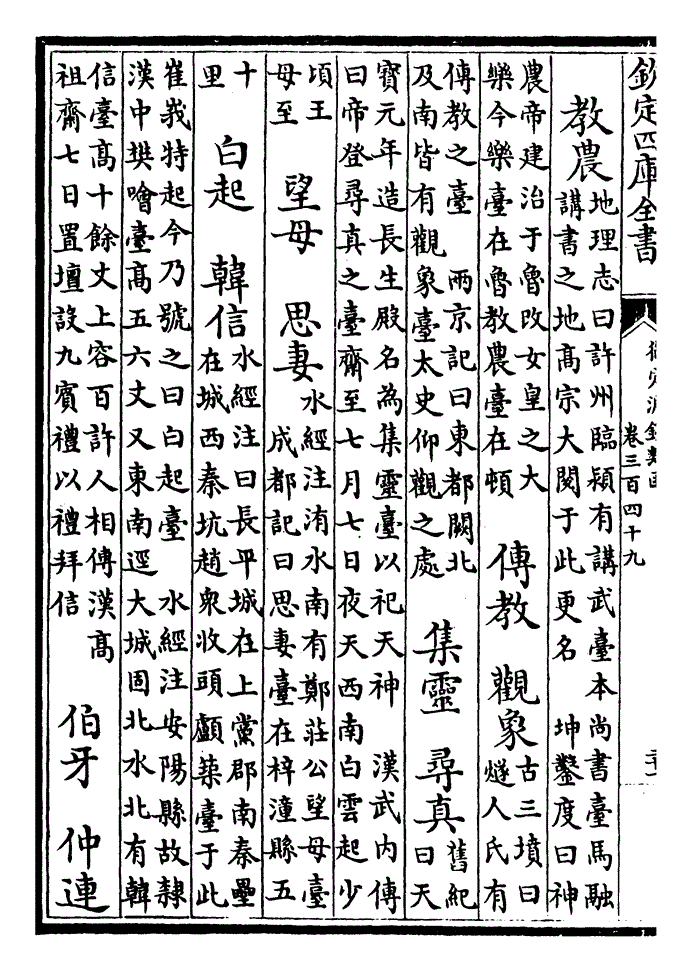 欽定四庫全書
卷三百四十九
教農
地理志曰許州臨潁有講武臺本尚書臺馬融
講書之地髙宗大閱于此更名　坤鑿度曰神
農帝建治于魯改女皇之大
樂今樂臺在魯教農臺在頓
傳教　觀象
古三墳曰
燧人氏有
傳教之臺　兩京記曰東都闕北
及南皆有觀象臺太史仰觀之處
集靈　尋真
舊紀
曰天
寳元年造長生殿名為集靈臺以祀天神　漢武内傳
曰帝登尋真之臺齋至七月七日夜天西南白雲起少
頃王
母至
望母　思妻
水經注洧水南有鄭莊公望母臺
成都記曰思妻臺在梓潼縣五
十
里
白起　韓信
水經注曰長平城在上黨郡南秦壘
在城西秦坑趙衆收頭顱築臺于此
崔峩特起今乃號之曰白起臺　水經注安陽縣故隸
漢中樊噲臺髙五六丈又東南逕大城固北水北有韓
信臺髙十餘丈上容百許人相傳漢髙
祖齋七日置壇設九賓禮以禮拜信
伯牙　仲連